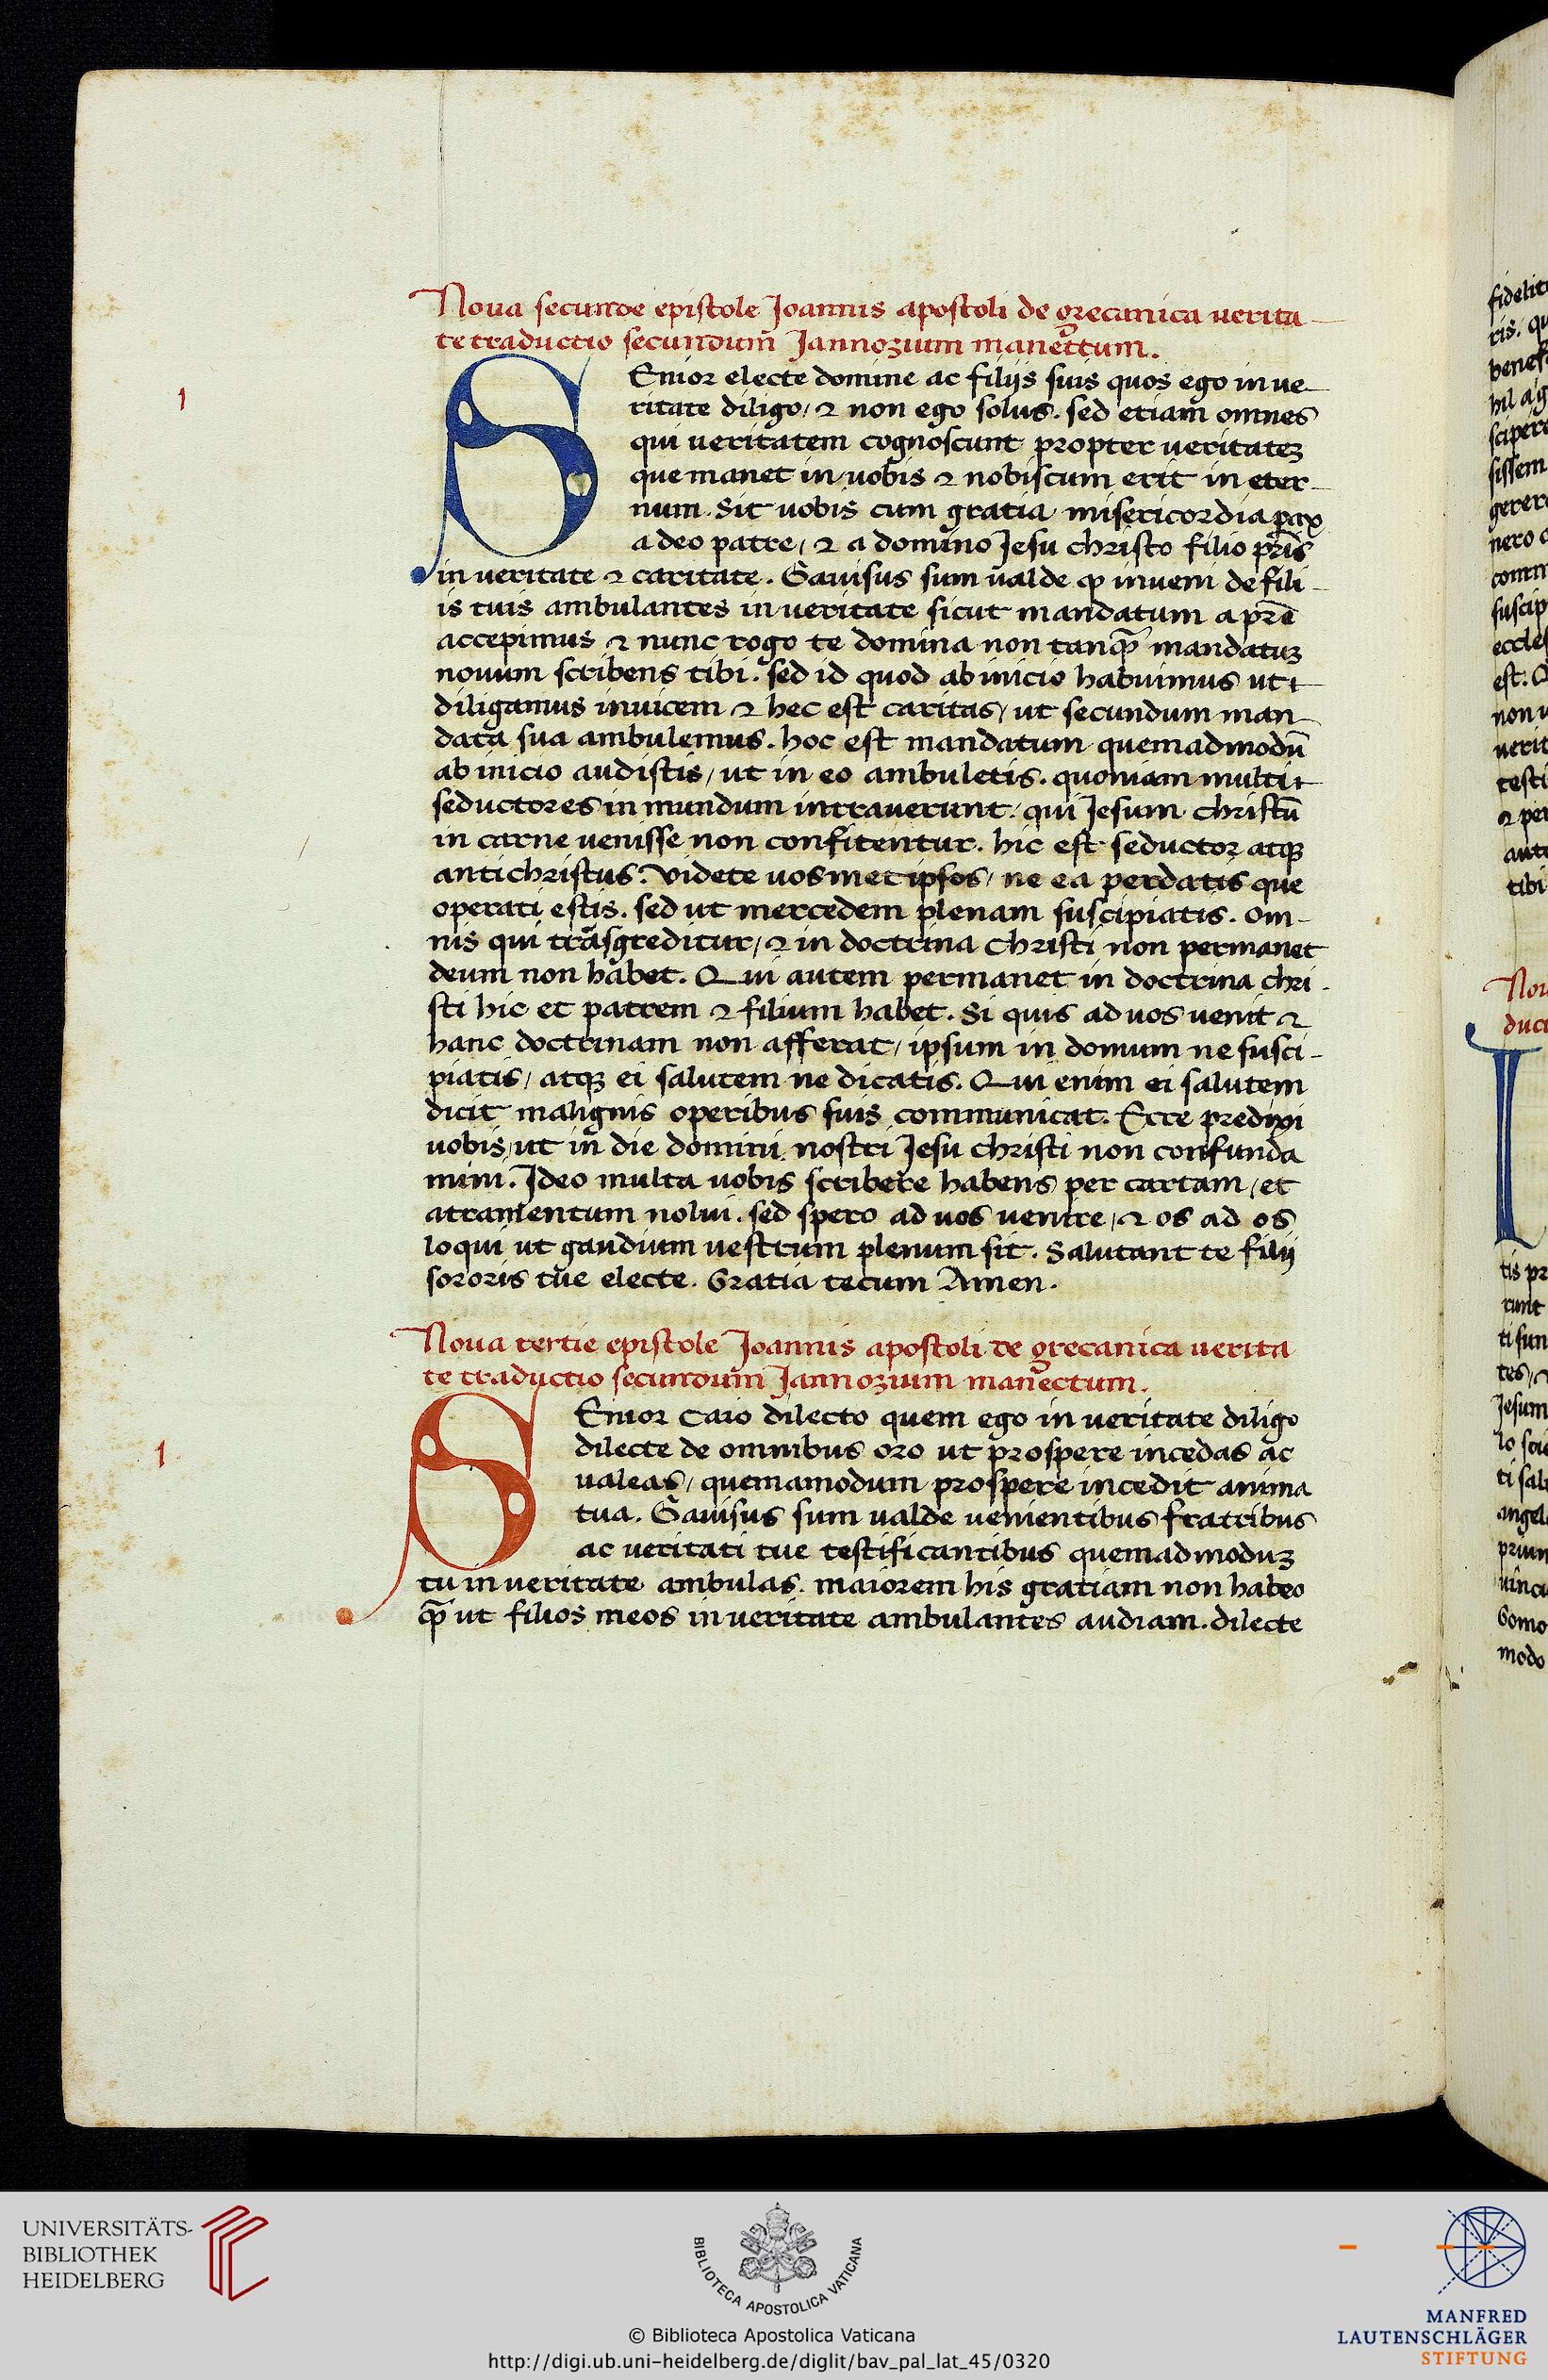 Noua secunde epistole Joannis apostoli de grecanica verita
te traductio secundum Jannozium manettum.
1
SEnior electe domine ac filijs suis quos ego in ve
ritate diligo / ⁊ non ego solus. sed etiam omnes
qui veritatem cognoscunt propter veritateꝫ
que manet in uobis ⁊ nobiscum erit in eter-
num. Sit uobis cum gratia misericordia pax
a deo patre / ⁊ a domino Jesu christo filio pr̃is
in veritate ⁊ caritate. Gauisus sum valde ꝙ inveni de fili-
is tuis ambulantes in veritate sicut mandatum a prẽ
accepimus ⁊ nunc rogo te domina non tanꝙ̃ mandatuꝫ
novum scribens tibi. sed id quod ab inicio habuimus ut
diligamus invicem ⁊ hec est caritas / ut secundum man
data sua ambulemus. hoc est mandatum quemadmodũ
ab inicio audistis / ut in eo ambuletis. quoniam multi
seductores in mundum intraverunt. qui Jesum christũ
in carne venisse non confitentur. hic est seductor atqꝫ
antichristus. Videte uosmet ipsos / ne ea perdatis que
operati estis. sed ut mercedem plenam suscipiatis. Om-
nis qui trãsgreditur / ⁊ in doctrina christi non permanet
deum non habet. Qui autem permanet in doctrina chri-
sti hic et patrem ⁊ filium habet. Si quis ad uos venit ⁊
hanc doctrinam non afferat / ipsum in domum ne susci-
piatis / atqꝫ ei salutem ne dicatis. Qui enim ei salutem
dicit malignis operibus suis communicat. Ecce predixi
uobis ut in die domini nostri Jesu christi non confunda
mini. Ideo multa uobis scribere habens per cartam / et
atramentum nolui. sed spero ad uos venire / ⁊ os ad os
loqui ut gaudium vestrum plenum sit. Salutant te filij
sororis tue electe. Gratia tecum Amen.
Noua tertie epistole Joannis apostoli de grecanica verita
te traductio secundum Jannozium manectum.
1
SEnior Caio dilecto quem ego in veritate diligo
dilecte de omnibus oro ut prospere incedas ac
valeas / quemamodum prospere incedit anima
tua. Gauisus sum valde venientibus fratribus
ac veritati tue testificantibus quemadmoduꝫ
tu in veritate ambulas. maiorem his gratiam non habeo
ꝙ̃ ut filios meos in veritate ambulantes audiam. dilecte
UNIVERSITÄTS-
BIBLIOTHEK
HEIDELBERG
BIBLIOTECA APOSTOLICA VATICANA
© Biblioteca Apostolica Vaticana
http://digi.ub.uni-heidelberg.de/diglit/bav_pal_lat_45/0320
MANFRED
LAUTENSCHLÄGER
STIFTUNG